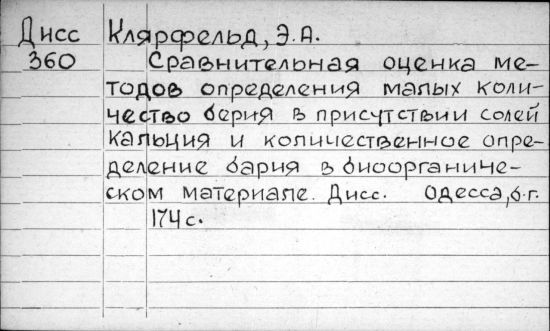 Дисс Клярфельд, Э.А.
360 Сравнительная оценка ме-
тодов определения малых коли-
чество берия в присутствии солей
кальция и количественное опре-
деление бария в биоорганиче-
ском материале. Дисс. Одесса, б.г.
174 с.